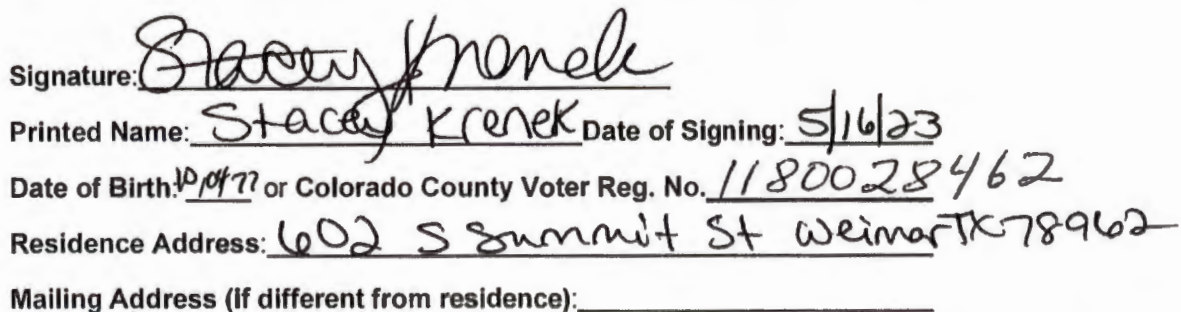 Signature: Stacey Krenek
Printed Name: Stacey Krenek Date of Signing: 5/16/23
Date of Birth: 10/04/77 or Colorado County Voter Reg. No. 1180028462
Residence Address: 602 S Summit St Weimar TX 78962
Mailing Address (if different from residence):